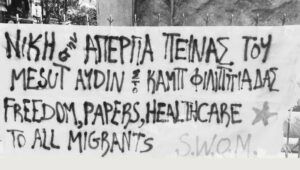 ΝΙΚΗ στην ΑΠΕΡΓΙΑ ΠΕΙΝΑΣ ΤΟΥ
MESUT AYDIN στο ΚΑΜΠ ΦΙΛΙΠΠΙΑΔΑΣ
FREEDOM, PAPERS, HEALTHCARE
TO ALL MIGRANTS S.W.O.M.